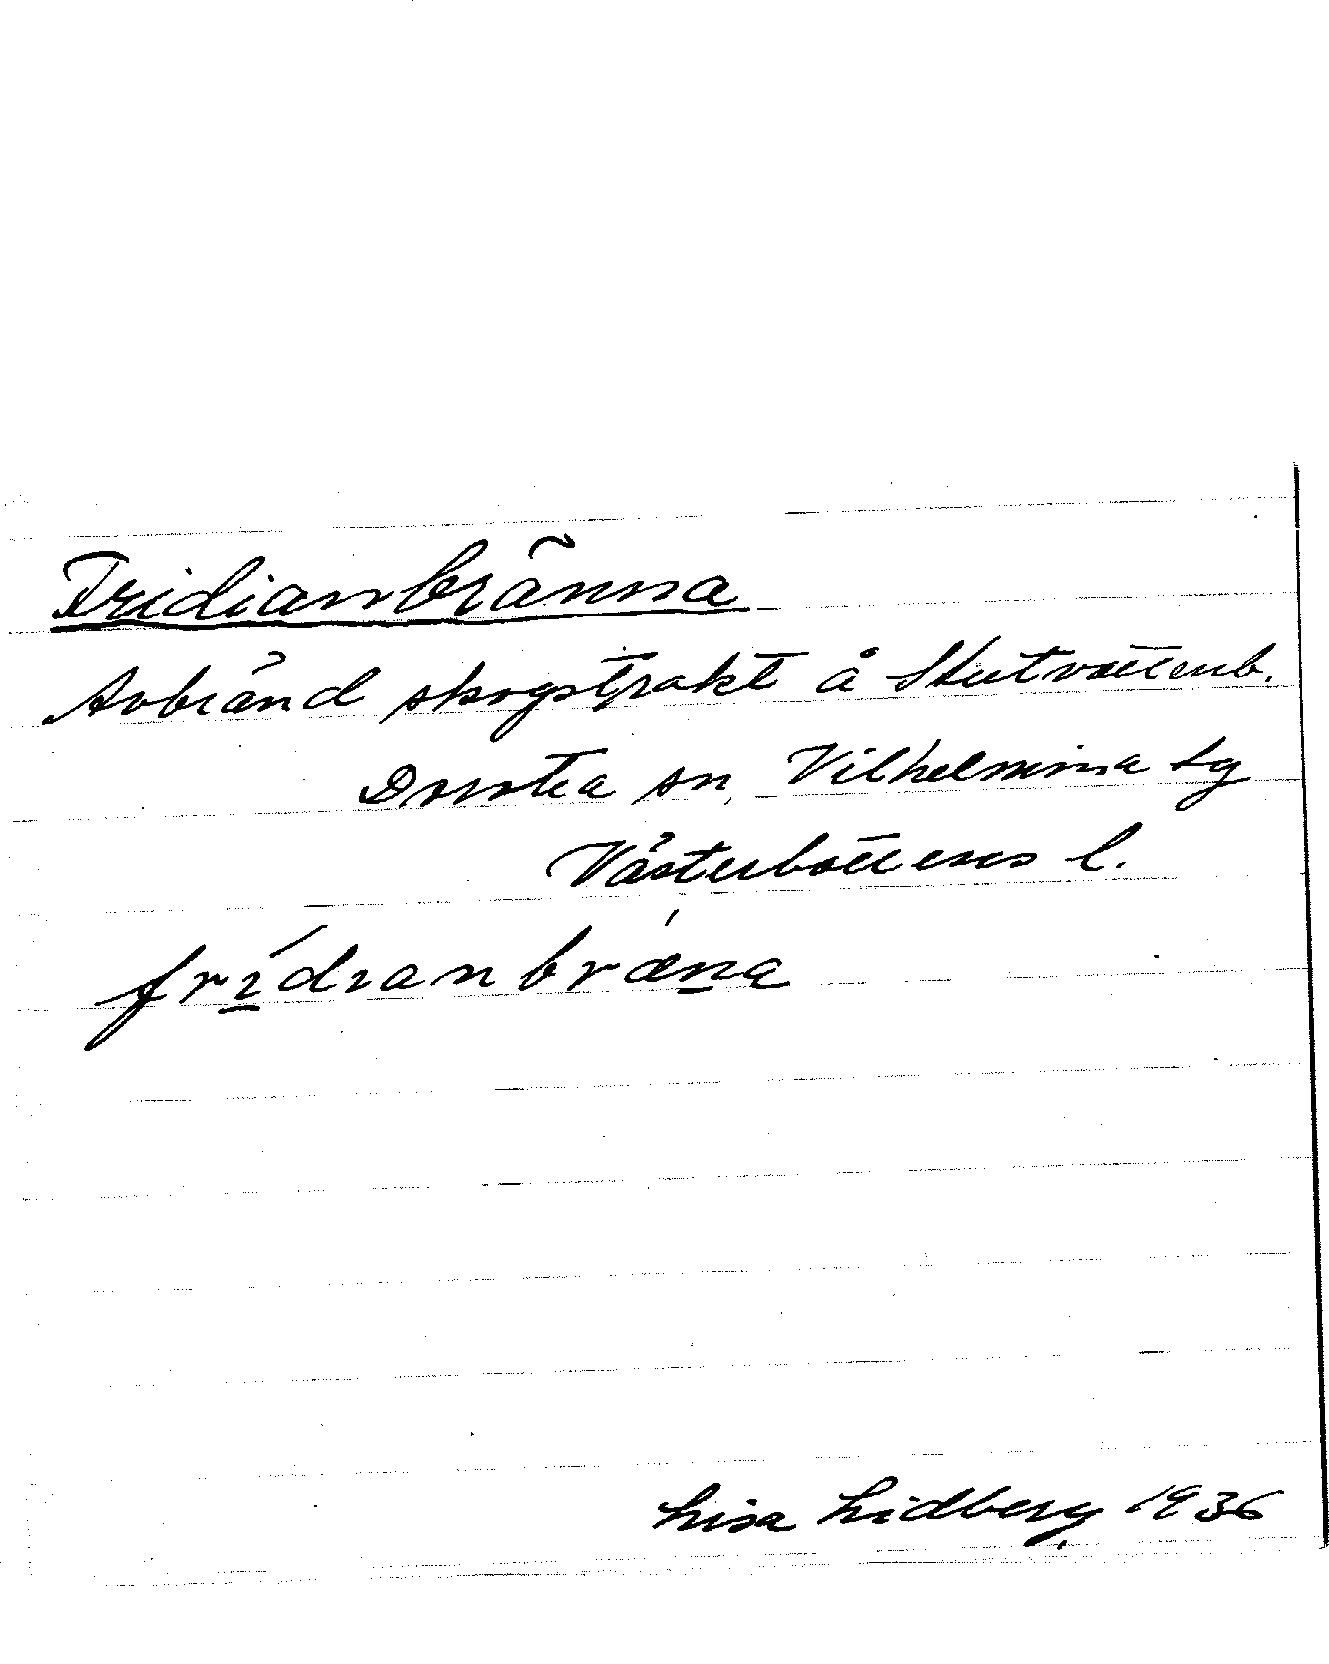 Fridianbränna
Avbränd skogstrakt å Stutvattnb.
Dorotea sn, Vilhelmina tg
Västerbottens l.
frídianbræ̀na
Lisa Lidberg 1936